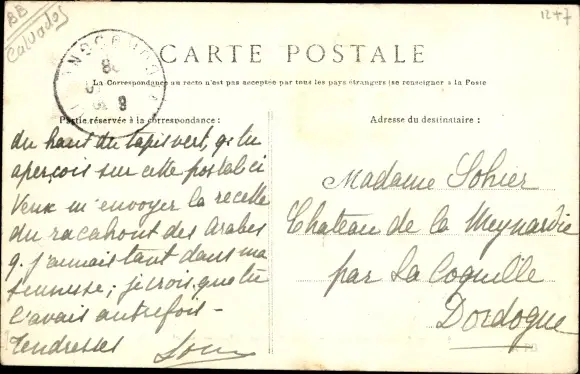 BB
Calvados
12+7
CARTE POSTALE
La Correspondance au recto n'est pas acceptée par tous les pays étrangers (se renseigner à la Poste
Partie réservée à la correspondance :
du haut du tapis vert, q. tu
aperçois sur cette postal ci
Veux m'envoyer la recette
du racahout des Arabes
q. j'aimais tant dans ma
jeunesse ; je crois que tu
l'avais autrefois -
Tendresses
Adresse du destinataire :
Madame Sohier
Chateau de la Meynardie
par La Coquille
Dordogne